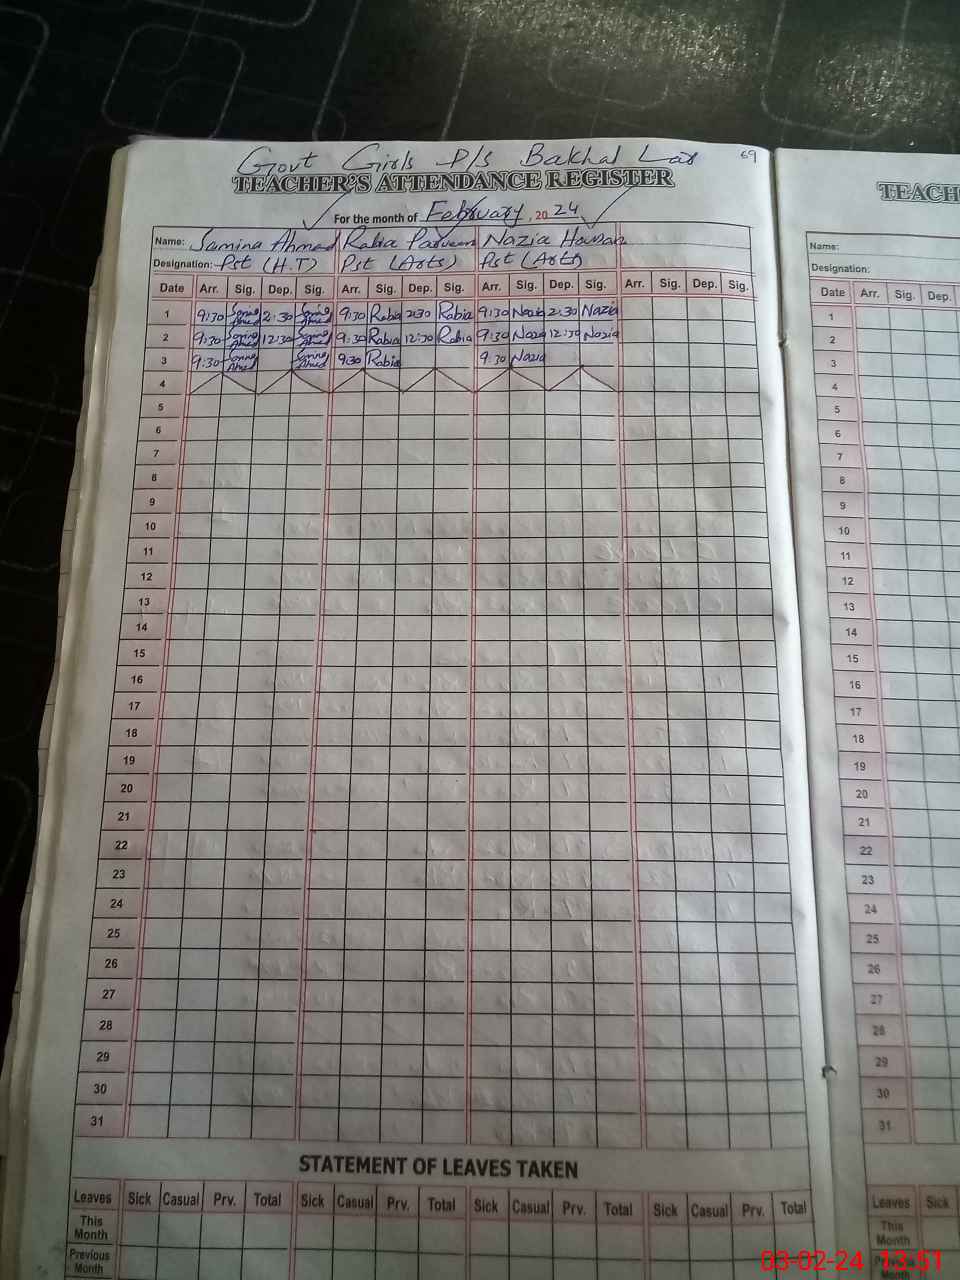 Govt Girls P/S Bakhal Lar 69
TEACHER'S ATTENDANCE REGISTER TEACH
For the month of February, 2024
Name: Samina Ahmed Rabia Parveen Nazia Hassan Name:
Designation: Pst (H.T) Pst (Arts) Pst (Arts) Designation:
Date Arr. Sig. Dep. Sig. Arr. Sig. Dep. Sig. Arr. Sig. Dep. Sig. Arr. Sig. Dep. Sig. Date Arr. Sig. Dep.
1 9:30 Samina Ahmed 2:30 Samina Ahmed 9:30 Rabia 2:30 Rabia 9:30 Nazia 2:30 Nazia 1
2 9:30 Samina Ahmed 12:30 Samina Ahmed 9:30 Rabia 12:30 Rabia 9:30 Nazia 12:30 Nazia 2
3 9:30 Samina Ahmed Samina Ahmed 9:30 Rabia 9:30 Nazia 3
4 4
5 5
6 6
7 7
8 8
9 9
10 10
11 11
12 12
13 13
14 14
15 15
16 16
17 17
18 18
19 19
20 20
21 21
22 22
23 23
24 24
25 25
26 26
27 27
28 28
29 29
30 30
31 31
STATEMENT OF LEAVES TAKEN
Leaves Sick Casual Prv. Total Sick Casual Prv. Total Sick Casual Prv. Total Sick Casual Prv. Total Leaves Sick
This Month This Month
Previous Month Previous Month
03-02-24 13:51